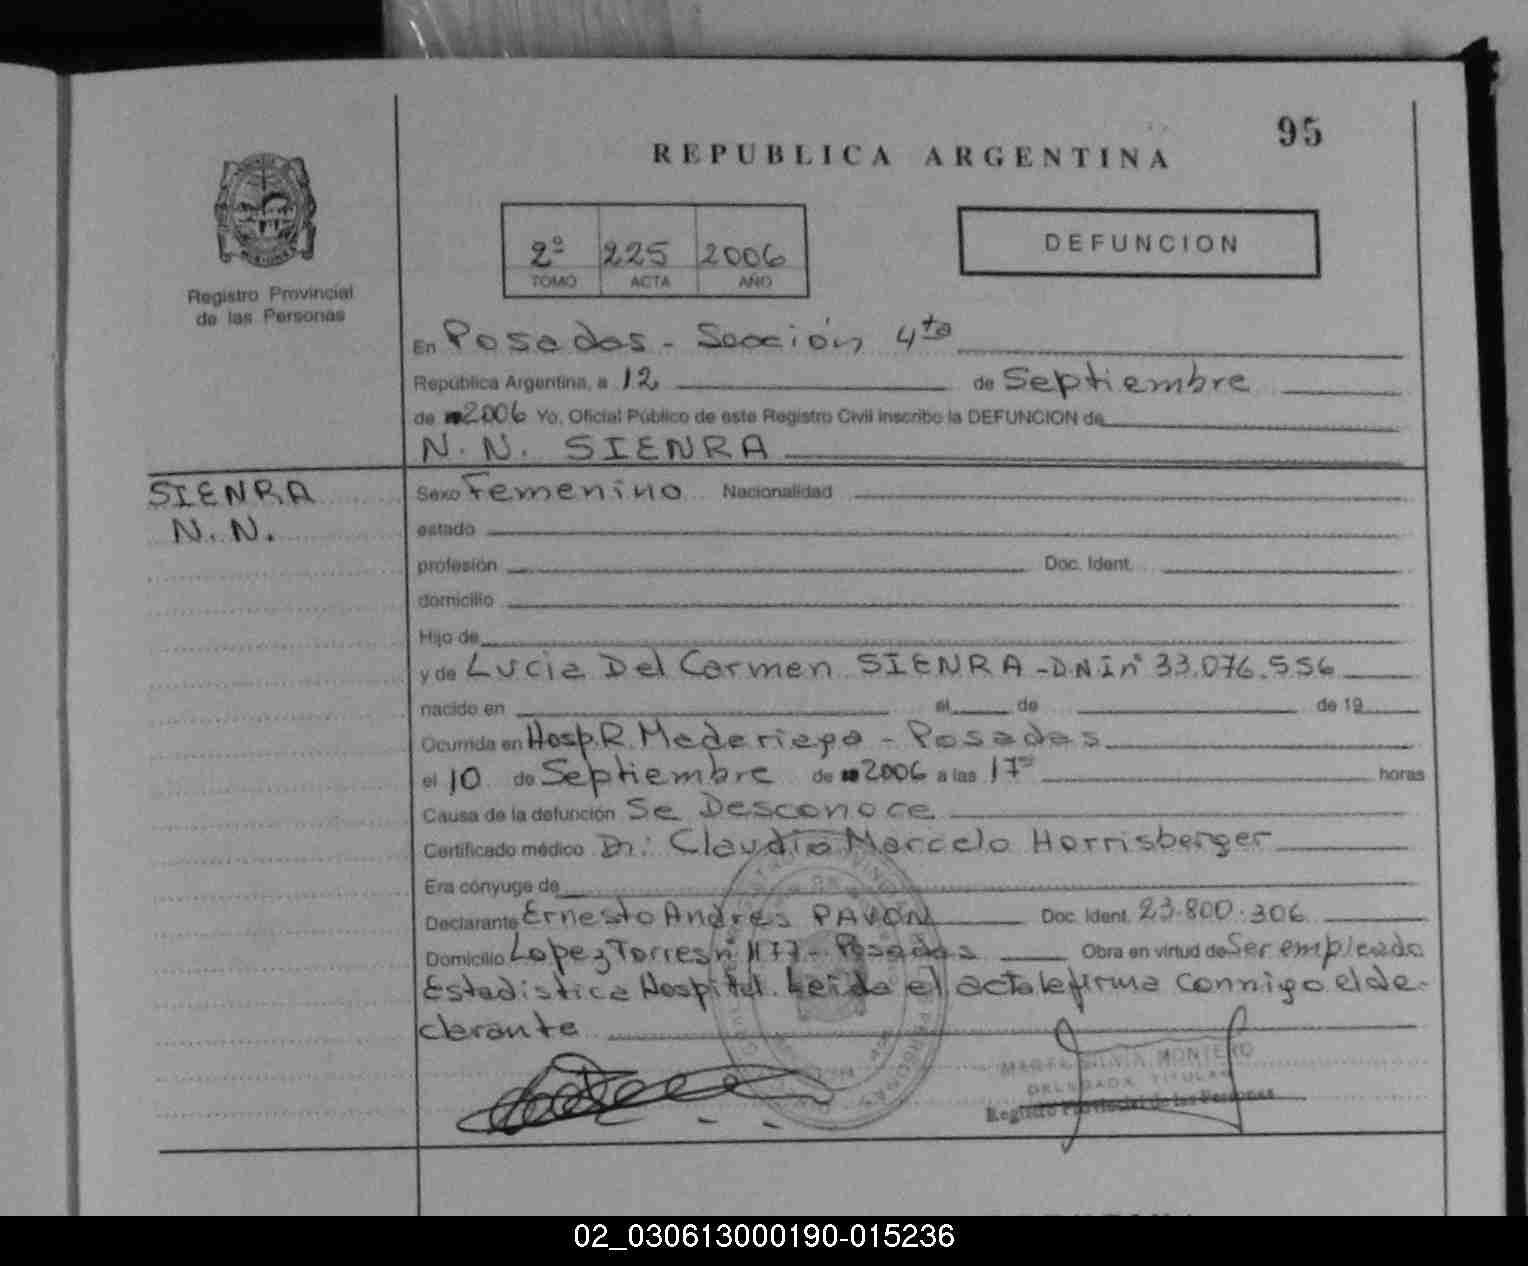 95
REPUBLICA ARGENTINA
2º 225 2006
TOMO ACTA AÑO
DEFUNCION
Registro Provincial
de las Personas
En Posadas - Sección 4ta
República Argentina, a 12 de Septiembre
de 2006 Yo, Oficial Público de este Registro Civil inscribo la DEFUNCION de
N. N. SIENRA
SIENRA
N. N.
Sexo Femenino Nacionalidad
estado
profesión Doc. Ident.
domicilio
Hijo de
y de Lucia Del Carmen SIENRA - D.N.I nº 33.076.556
nacido en el de de 19
Ocurrida en Hosp. R. Madariaga - Posadas
el 10 de Septiembre de 2006 a las 17 horas
Causa de la defunción Se Desconoce
Certificado médico Dr: Claudio Marcelo Horrisberger
Era cónyuge de
Declarante Ernesto Andres PAVON Doc. Ident. 23.800.306
Domicilio Lopez Torres nº 1177 - Posadas Obra en virtud de Ser empleado
Estadistica Hospital. Leida el acta le firma conmigo el de-
clarante
MONTERO
DELEGADA TITULAR
Registro Provincial de las Personas
02_030613000190-015236